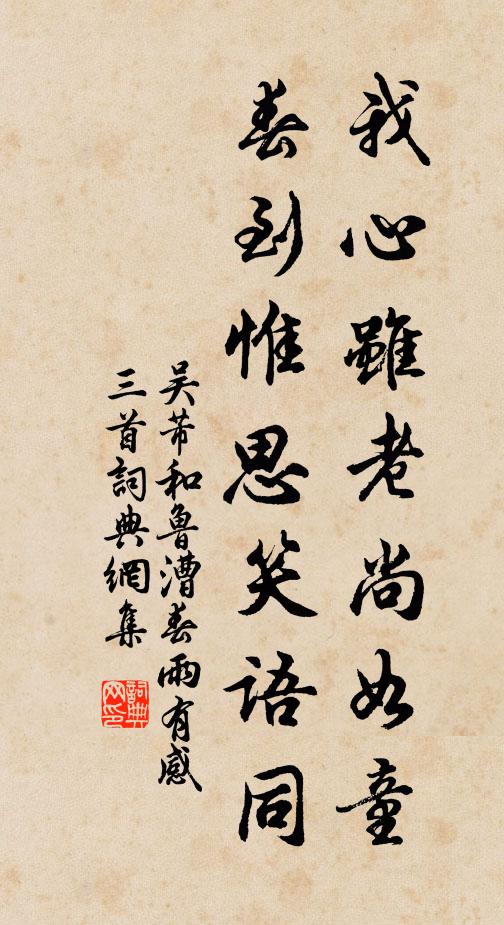 我心雖老尚如童
春到惟思笑語同
吴芾和魯漕春雨有感
三首詞典網集
詞典網印